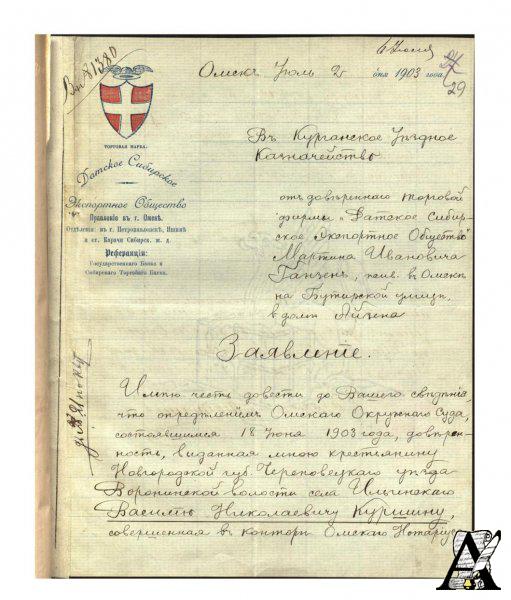 6 Июля
Вх 81380
Омскъ Іюль 2 дня 1903 года.
29
ТОРГОВАЯ МАРКА.
Датское Сибирское
Экспортное Общество
Правленіе въ г. Омскѣ.
Отдѣленія въ г. Петропавловскѣ, Ишимѣ
и ст. Карачи Сибирск. ж. д.
Референціи:
Государственнаго Банка и
Сибирскаго Торговаго Банка.
Въ Курганское Уѣздное
Казначейство
отъ довѣреннаго торговой
фирмы „Датское Сибир-
ское Экспортное Общество"
Мартина Ивановича
Ганчень, жив. въ Омскѣ
на Бутырской улицѣ,
въ домѣ
Заявленіе.
Имѣю честь довести до Вашего свѣдѣнія,
что опредѣленіемъ Омскаго Окружнаго Суда,
состоявшимся 18 Іюня 1903 года, довѣрен-
ность, выданная мною крестьянину
Новгородской губ. Череповецкаго уѣзда
Воронинской волости села Ильинскаго
Василію Николаевичу Куршину,
совершенная въ конторѣ Омскаго Нотаріуса